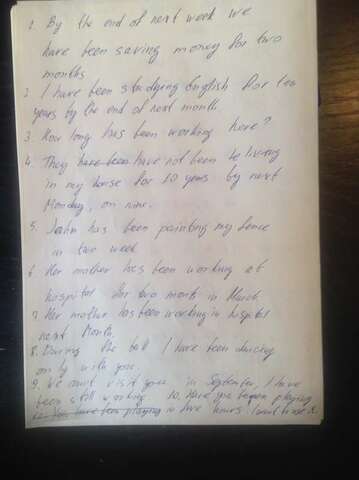 1. By the end of next week we
have been saving money for two
months
2. I have been studying English for ten
years by the end of next month
3. How long has been working here?
4. They have been have not been be living
in my house for 10 years by next
Monday, on nine.
5. John has been painting my fence
in two week
6. Her mother has been working at
hospital for two month in March
7. Her mother has been working in hospital
next Month.
8. During the ball I have been dancing
only with you.
9. We can't visit you in September, I have
been still working 10. Have you been playing
in two hours I want